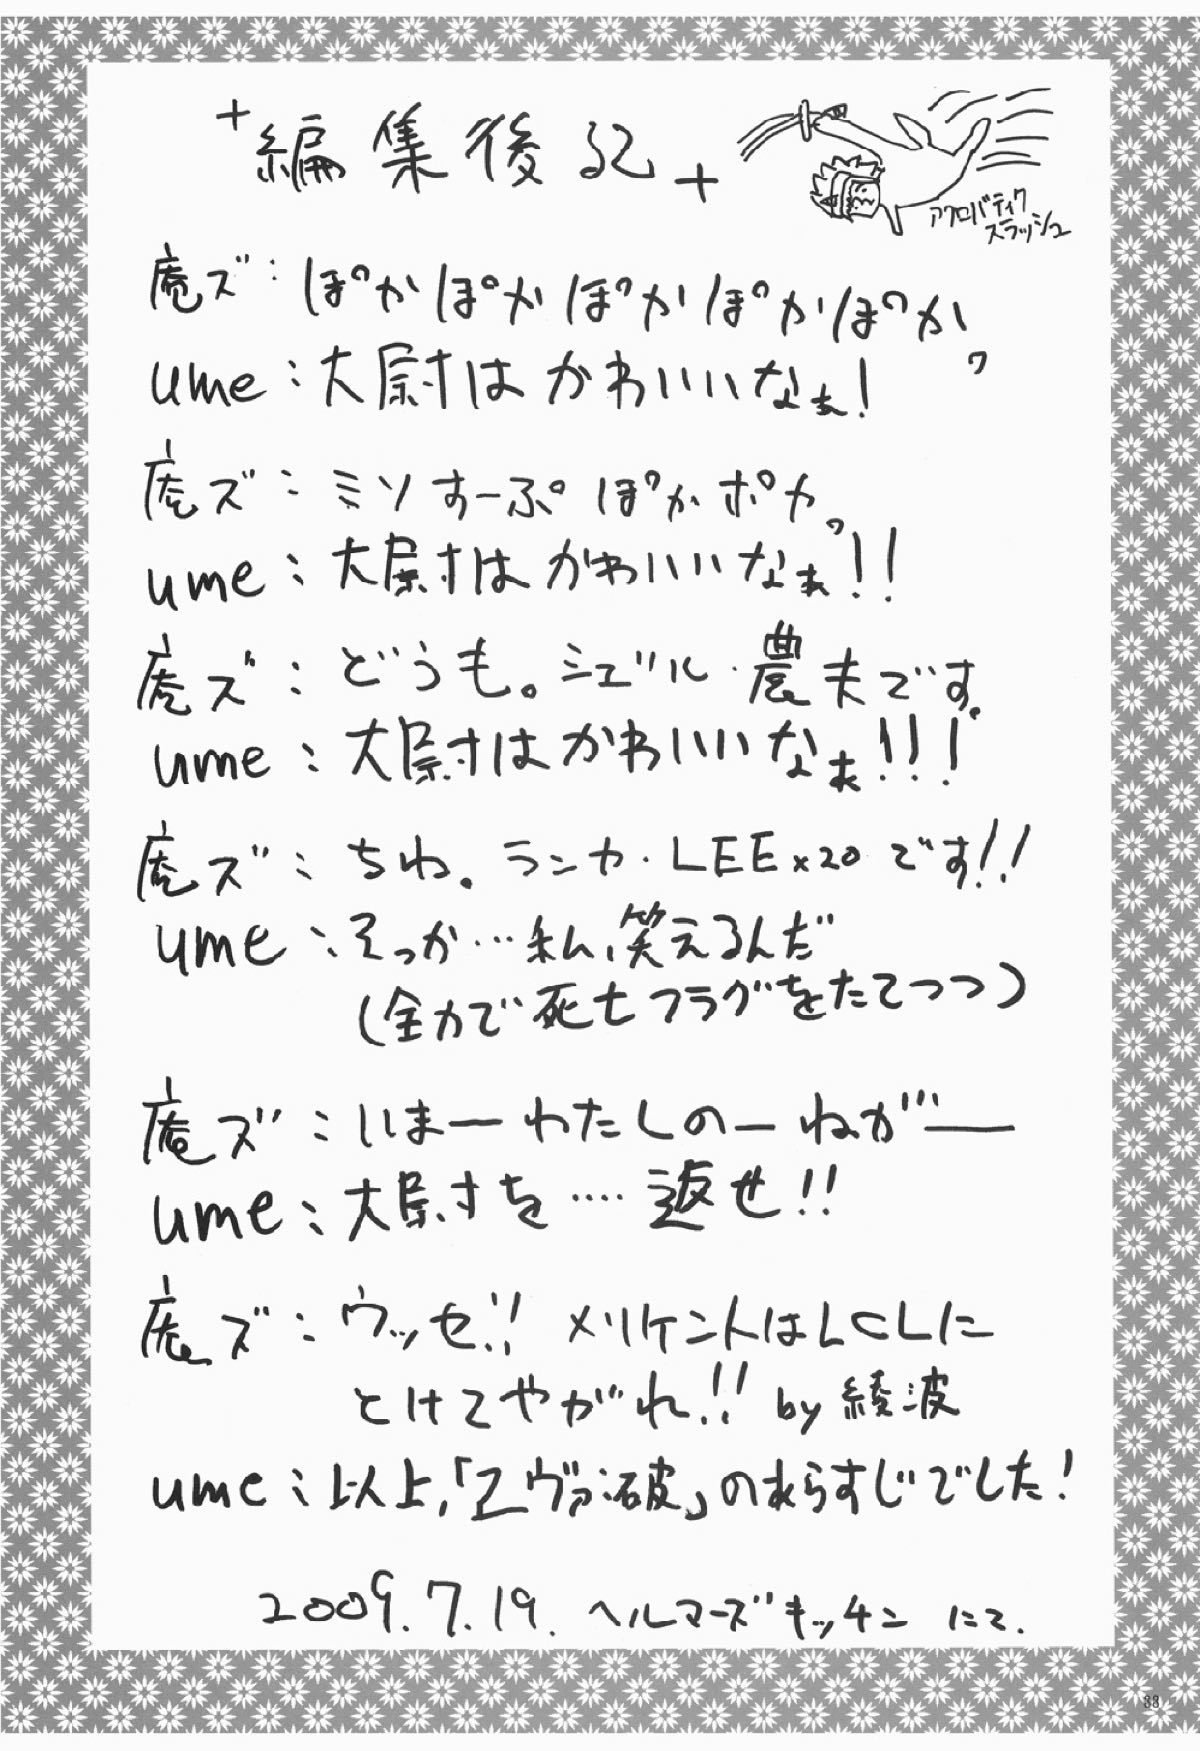 +編集後記+
アクロバティク
スラッシュ
庵ズ:ぽかぽかぽかぽかぽか。
ume:大尉はかわいいなぁ!
庵ズ:ミソすーぷぽかポカ。
ume:大尉はかわいいなぁ!!
庵ズ:どうも。シエ゛ル・農夫です。
ume:大尉はかわいいなぁ!!!
庵ズ:ちわ。ランカ・LEE×20です!!
ume:そっか…私、笑えるんだ
(全力で死亡フラグをたてつつ)
庵ズ:いまーわたしのーねがー
ume:大尉を‥‥返せ!!
庵ズ:ウッセ!! メリケントはLCLに
とけてやがれ!! by 綾波
ume:以上、「ヱヴァ:破」のあらすじでした!
2009.7.19. ヘルマーズキッチン にて.
33